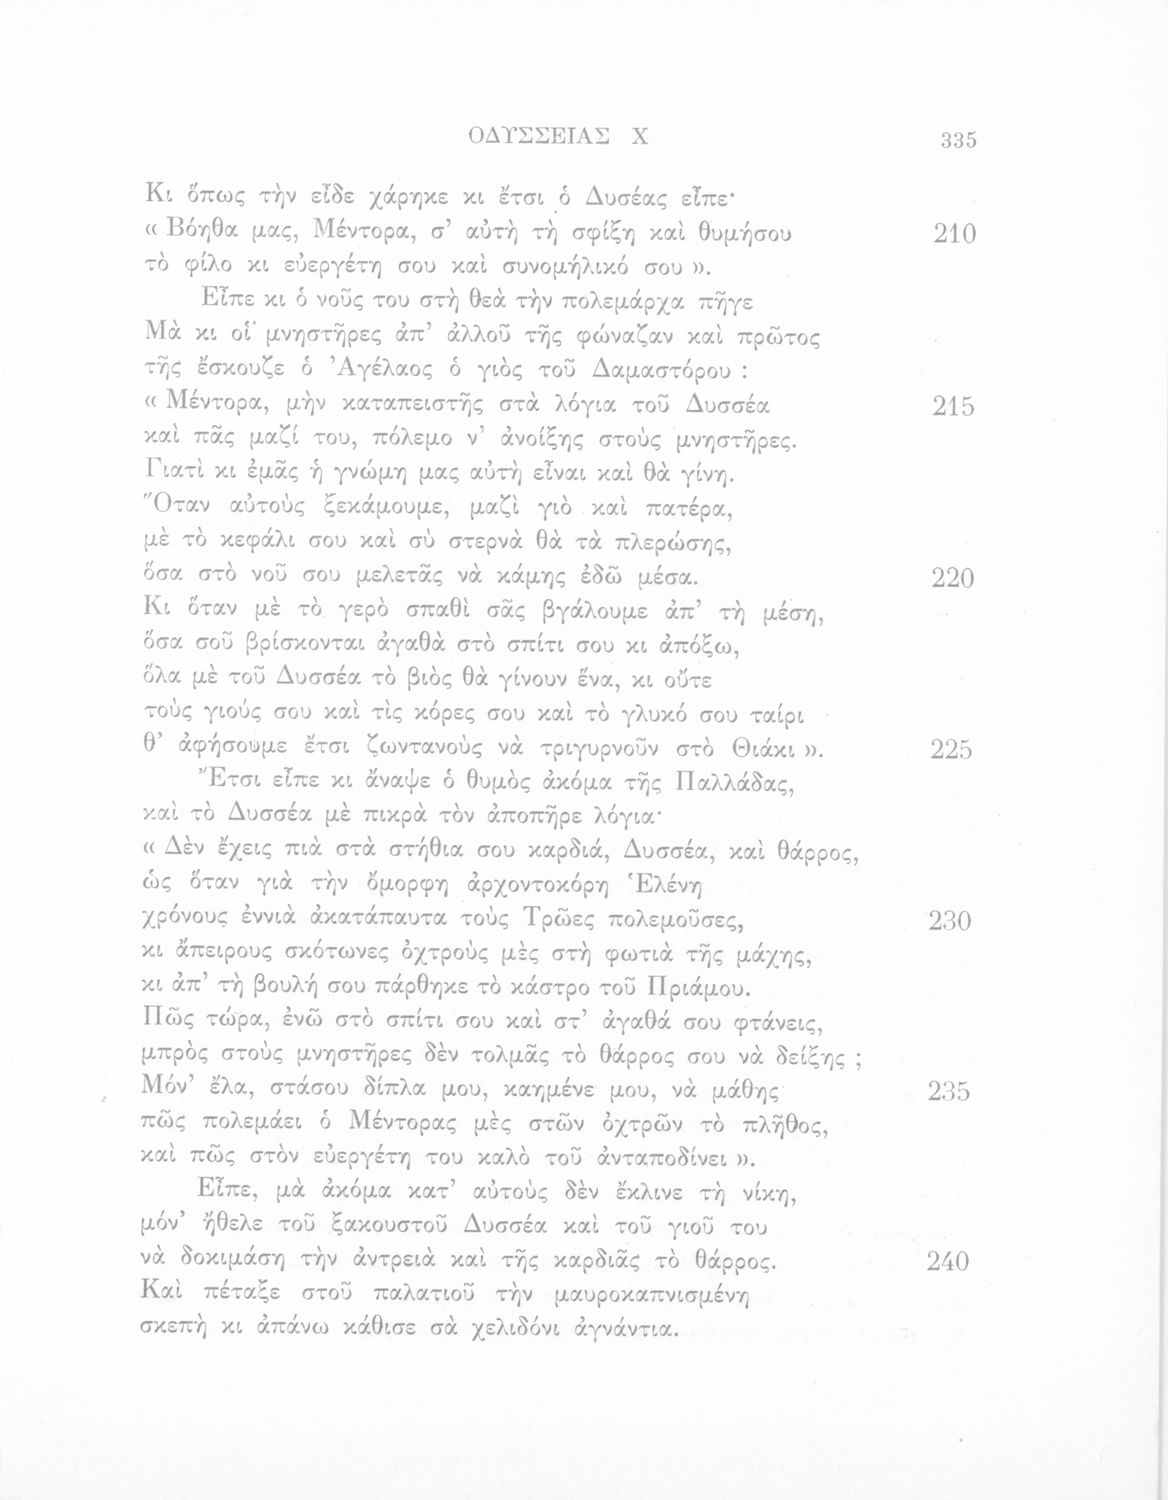 ΟΔΥΣΣΕΙΑΣ Χ 335
Κι ὅπως τὴν εἶδε χάρηκε κι ἔτσι ὁ Δυσέας εἶπε·
« Βόηθα μας, Μέντορα, σ’ αὐτὴ τὴ σφίξη καὶ θυμήσου 210
τὸ φίλο κι εὐεργέτη σου καὶ συνομήλικό σου ».
Εἶπε κι ὁ νοῦς του στὴ θεὰ τὴν πολεμάρχα πῆγε
Μὰ κι οἱ μνηστῆρες ἀπ’ ἀλλοῦ τῆς φώναζαν καὶ πρῶτος
τῆς ἔσκουζε ὁ Ἀγέλαος ὁ γιὸς τοῦ Δαμαστόρου :
« Μέντορα, μὴν καταπειστῆς στὰ λόγια τοῦ Δυσσέα 215
καὶ πᾶς μαζί του, πόλεμο ν’ ἀνοίξης στοὺς μνηστῆρες.
Γιατὶ κι ἐμᾶς ἡ γνώμη μας αὐτὴ εἶναι καὶ θὰ γίνη.
Ὅταν αὐτοὺς ξεκάμουμε, μαζὶ γιὸ καὶ πατέρα,
μὲ τὸ κεφάλι σου καὶ σὺ στερνὰ θὰ τὰ πλερώσης,
ὅσα στὸ νοῦ σου μελετᾶς νὰ κάμης ἐδῶ μέσα. 220
Κι ὅταν μὲ τὸ γερὸ σπαθὶ σᾶς βγάλουμε ἀπ’ τὴ μέση,
ὅσα σοῦ βρίσκονται ἀγαθὰ στὸ σπίτι σου κι ἀπόξω,
ὅλα μὲ τοῦ Δυσσέα τὸ βιὸς θὰ γίνουν ἕνα, κι οὔτε
τοὺς γιούς σου καὶ τὶς κόρες σου καὶ τὸ γλυκό σου ταίρι
θ’ ἀφήσουμε ἔτσι ζωντανοὺς νὰ τριγυρνοῦν στὸ Θιάκι ». 225
Ἔτσι εἶπε κι ἄναψε ὁ θυμὸς ἀκόμα τῆς Παλλάδας,
καὶ τὸ Δυσσέα μὲ πικρὰ τὸν ἀποπῆρε λόγια·
« Δὲν ἔχεις πιὰ στὰ στήθια σου καρδιά, Δυσσέα, καὶ θάρρος,
ὡς ὅταν γιὰ τὴν ὄμορφη ἀρχοντοκόρη Ἑλένη
χρόνους ἐννιὰ ἀκατάπαυτα τοὺς Τρῶες πολεμοῦσες, 230
κι ἄπειρους σκότωνες ὀχτροὺς μὲς στὴ φωτιὰ τῆς μάχης,
κι ἀπ’ τὴ βουλή σου πάρθηκε τὸ κάστρο τοῦ Πριάμου.
Πῶς τώρα, ἐνῶ στὸ σπίτι σου καὶ στ’ ἀγαθά σου φτάνεις,
μπρὸς στοὺς μνηστῆρες δὲν τολμᾶς τὸ θάρρος σου νὰ δείξης ;
Μόν’ ἔλα, στάσου δίπλα μου, καημένε μου, νὰ μάθης 235
πῶς πολεμάει ὁ Μέντορας μὲς στῶν ὀχτρῶν τὸ πλῆθος,
καὶ πῶς στὸν εὐεργέτη του καλὸ τοῦ ἀνταποδίνει ».
Εἶπε, μὰ ἀκόμα κατ’ αὐτοὺς δὲν ἔκλινε τὴ νίκη,
μόν’ ἤθελε τοῦ ξακουστοῦ Δυσσέα καὶ τοῦ γιοῦ του
νὰ δοκιμάση τὴν ἀντρειὰ καὶ τῆς καρδιᾶς τὸ θάρρος. 240
Καὶ πέταξε στοῦ παλατιοῦ τὴν μαυροκαπνισμένη
σκεπὴ κι ἀπάνω κάθισε σὰ χελιδόνι ἀγνάντια.